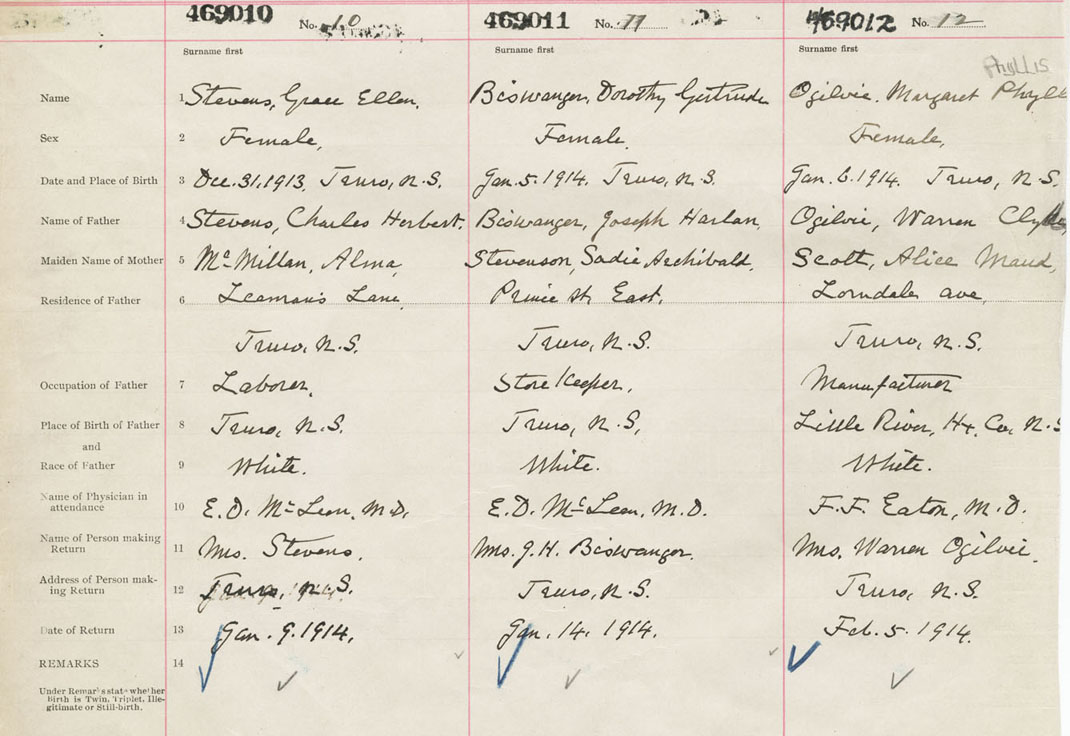 469010 No. 10 469011 No. 11 469012 No. 12
Surname first Surname first Surname first
Phyllis
Name 1 Stevens, Grace Ellen, Biswanger, Dorothy Gertrude Ogilvie, Margaret Phyll
Sex 2 Female, Female. Female,
Date and Place of Birth 3 Dec. 31, 1913, Truro, N.S. Jan. 5. 1914. Truro, N.S. Jan. 6. 1914. Truro, N.S.
Name of Father 4 Stevens, Charles Herbert. Biswanger, Joseph Harlan, Ogilvie, Warren Clyde
Maiden Name of Mother 5 McMillan, Alma, Stevenson, Sadie Archibald, Scott, Alice Maud,
Residence of Father 6 Leaman's Lane, Prince St. East, Lorndale ave,
Truro, N.S. Truro, N.S. Truro, N.S.
Occupation of Father 7 Laborer, Store Keeper, Manufacturer
Place of Birth of Father 8 Truro, N.S. Truro, N.S, Little River, Hx. Co, N.S
and
Race of Father 9 White. White. White.
Name of Physician in
attendance 10 E.D. McLean, M.D, E.D. McLean, M.D. F.F. Eaton, M.D.
Name of Person making
Return 11 Mrs. Stevens, Mrs. J.H. Biswanger. Mrs. Warren Ogilvie.
Address of Person mak-
ing Return 12 Truro, N.S. Truro, N.S. Truro, N.S.
Date of Return 13 Jan. 9. 1914, Jan. 14. 1914. Feb. 5. 1914.
REMARKS 14
Under Remarks state whether
Birth is Twin, Triplet, Ille-
gitimate or Still-birth.